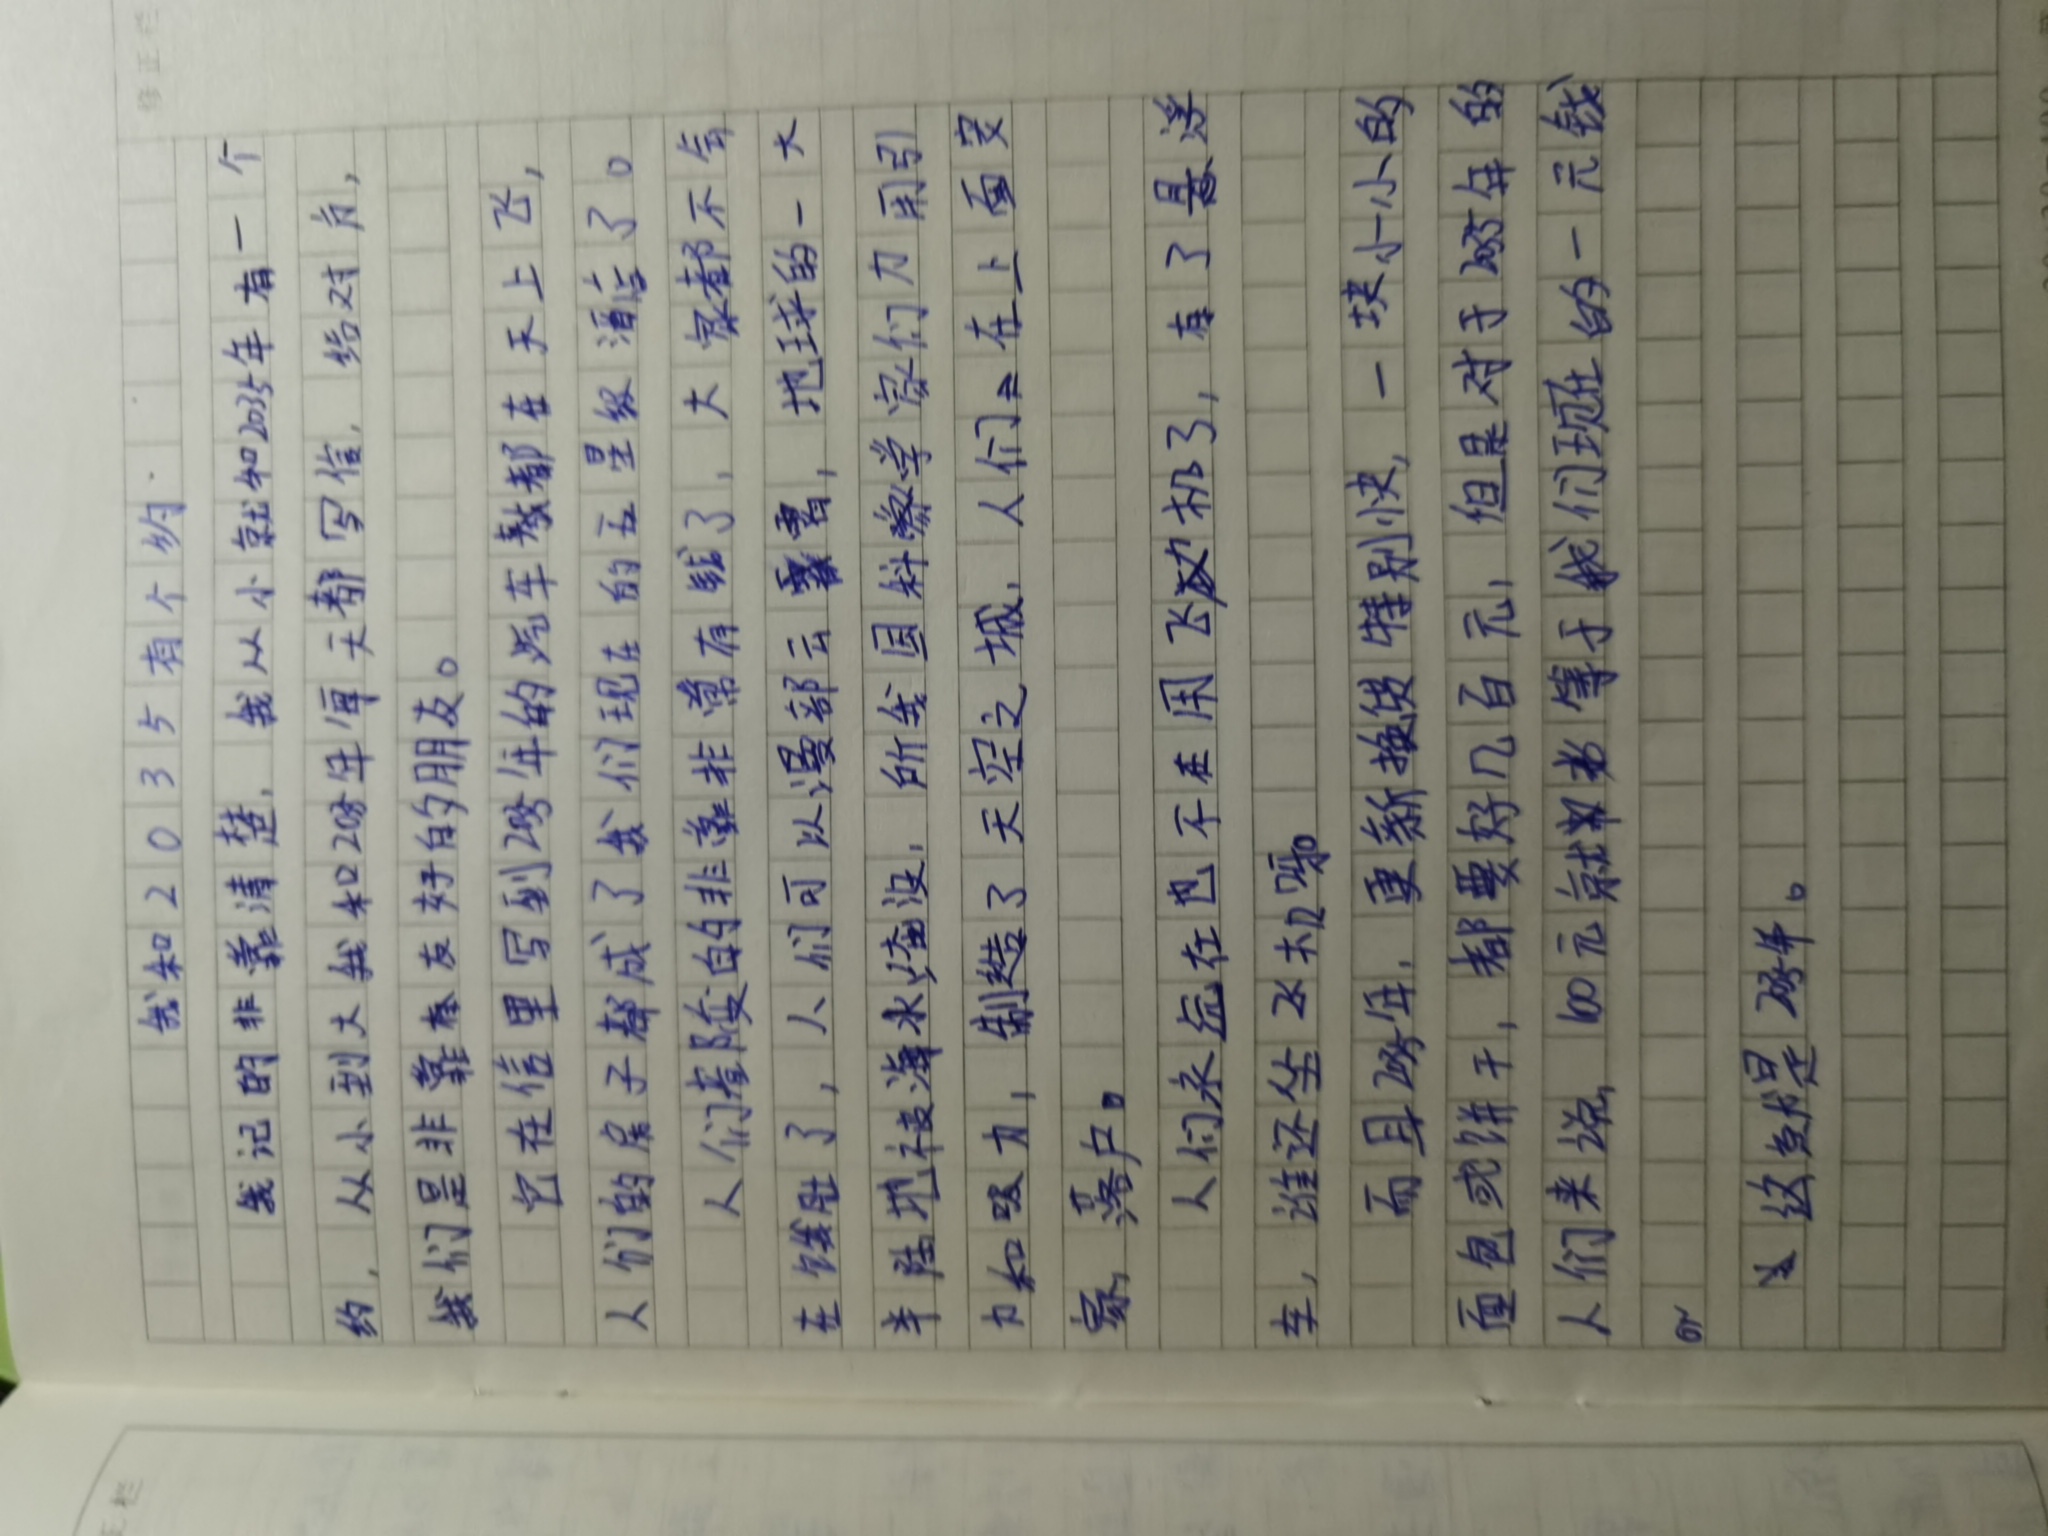 我和2035有个约
我记的非常清楚，我从小就和2035年有一个
约，从小到大我和2035年每天都写信，给对方，
我们是非常要友好的朋友。
它在信里写到2035年的汽车都在天上飞，
人们的房子都成了我们现在的五星级酒店了。
人们都变的非常非常有钱了，大家都不会
在饿肚了，人们可以漫部云霄，地球的一大
半陆地被海水淹没，所我国科学家们力用引
力和吸力，制造了天空之城，人们在上面安
家，落户。
人们永远在也不在用飞机了，有了悬浮
车，谁还坐飞机呀
而且2035年，更新换代特别快，一块小小的
面包或饼干，都要好几百元，但是对于2035年的
人们来说，100元就才等于我们现在的一元钱
这就是2035年。
修正栏